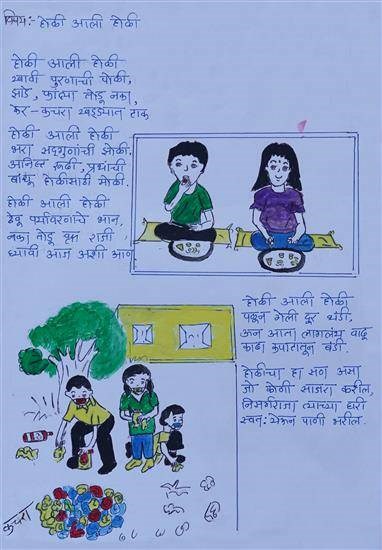 विषय:- होळी आली होळी
होळी आली होळी
खावी पुरणाची पोळी,
झाडे, फांद्या तोडू नका,
केर-कचरा खड्ड्यात टाक
होळी आली होळी
भरा सद्गुणांची झोळी.
अनिष्ट रूढी, प्रथांची
बांधू होळीसाठी मोळी.
होळी आली होळी
ठेवू पर्यावरणाचे भान,
नका तोडू वृक्ष राजी
घ्यावी आज अशी आण
होळी आली होळी
पळून गेली दूर थंडी,
ऊन आता लागलंय वाढू
काढा कपाटातून बंडी.
होळीचा हा सण असा
जो कोणी साजरा करील,
निसर्गराजा त्याच्या घरी
स्वतः येऊन पाणी भरील.
कचरा